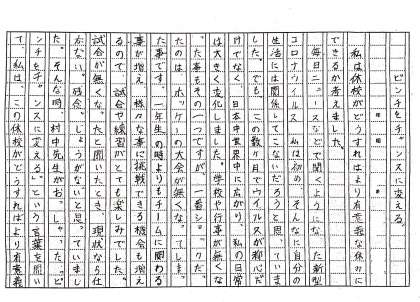 ピンチをチャンスに変える
私は休校がどうすればより有意義な休みに
できるか考えました。
毎日ニュースなどで聞くようになった新型
コロナウイルス。私は初め、そんなに自分の
生活には関係してこないだろうと思っていま
した。でも、この数ヶ月でウイルスが都心だ
けでなく、日本中世界中に広がり、私の日常
は大きく変化しました。学校や行事が無くな
った事もその一つですが、一番ショックだっ
たのは、ホッケーの大会が無くなってしまっ
た事です。一年生の時よりもチームに関わる
事が増え、様々な事に挑戦できる機会も増え
るので、試合や練習がとても楽しみでした。
試合が無くなったと聞いたとき、現状なら仕
方ない。残念。しょうがないと思っていまし
た。そんな時、村中先生がおっしゃった"ピ
ンチをチャンスに変える"という言葉を聞い
て、私は、この休校がどうすればより有意義